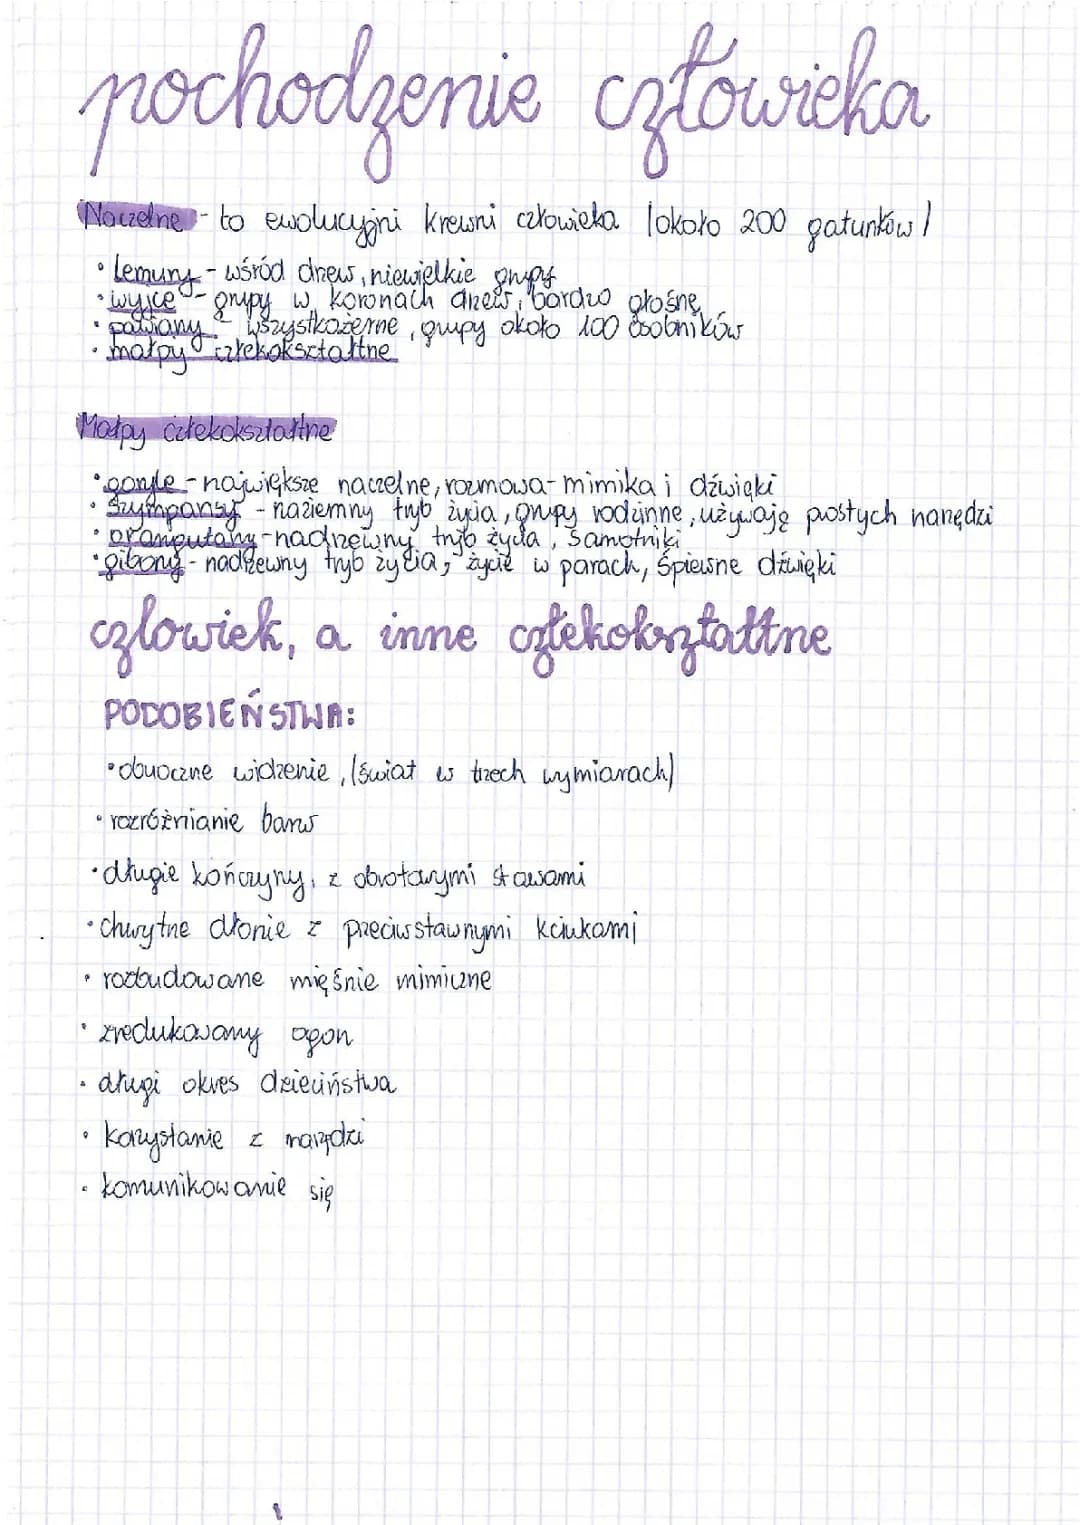 pochodzenie człowieka
Naczelne - to ewolucyjni krewni człowieka (około 200 gatunków)
• lemury - wśród drzew, niewielkie grupy
• wyjce - grupy w koronach drzew, bardzo głośne
• pawiany - wszystkożerne, grupy około 100 osobników
• małpy człekokształtne
Małpy człekokształtne
• goryle - największe naczelne, rozmowa - mimika i dźwięki
• szympansy - naziemny tryb życia, grupy rodzinne, używają prostych narzędzi
• orangutany - nadrzewny tryb życia, samotniki
• gibony - nadrzewny tryb życia, życie w parach, śpiewne dźwięki
człowiek, a inne człekokształtne
PODOBIEŃSTWA:
• obuoczne widzenie, (świat w trzech wymiarach)
• rozróżnianie barw
• długie kończyny, z obrotowymi stawami
• chwytne dłonie z przeciwstawnymi kciukami
• rozbudowane mięśnie mimiczne
• zredukowany ogon
• długi okres dzieciństwa
• korzystanie z narzędzi
• komunikowanie się